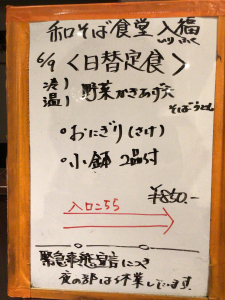 和そば食堂 入福
いり ふく
6/9 <日替定食>
冷)
温) 野菜かきあげ天
そばorうどん
・おにぎり(さけ)
・小鉢 2品付
¥850.-
入口こちら
緊急事態宣言につき
夜の部は休業しています。